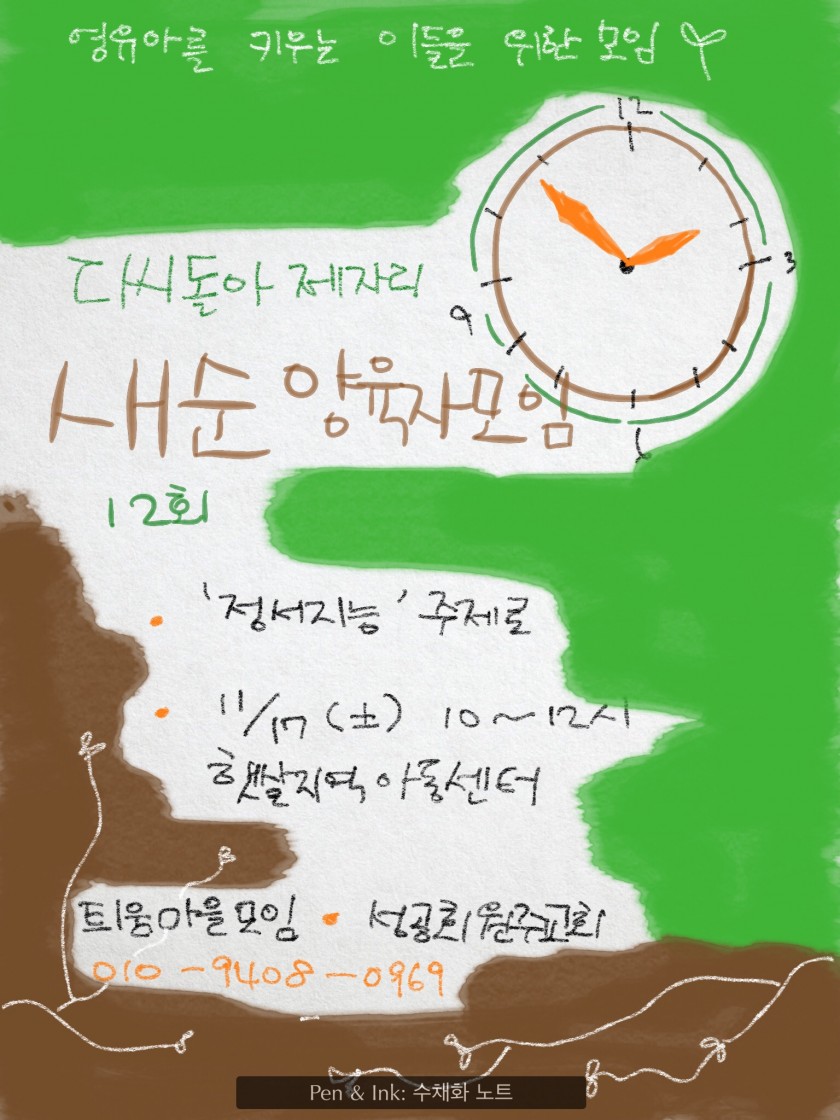 영유아를 키우는 이들을 위한 모임
12
3
9
6
다시돌아 제자리
새순 양육자모임
12회
• '정서지능' 주제로
• 11/17 (土) 10~12시
햇살지역아동센터
틔움마을모임 • 성공회원주교회
010-9408-0969
Pen & Ink: 수채화 노트